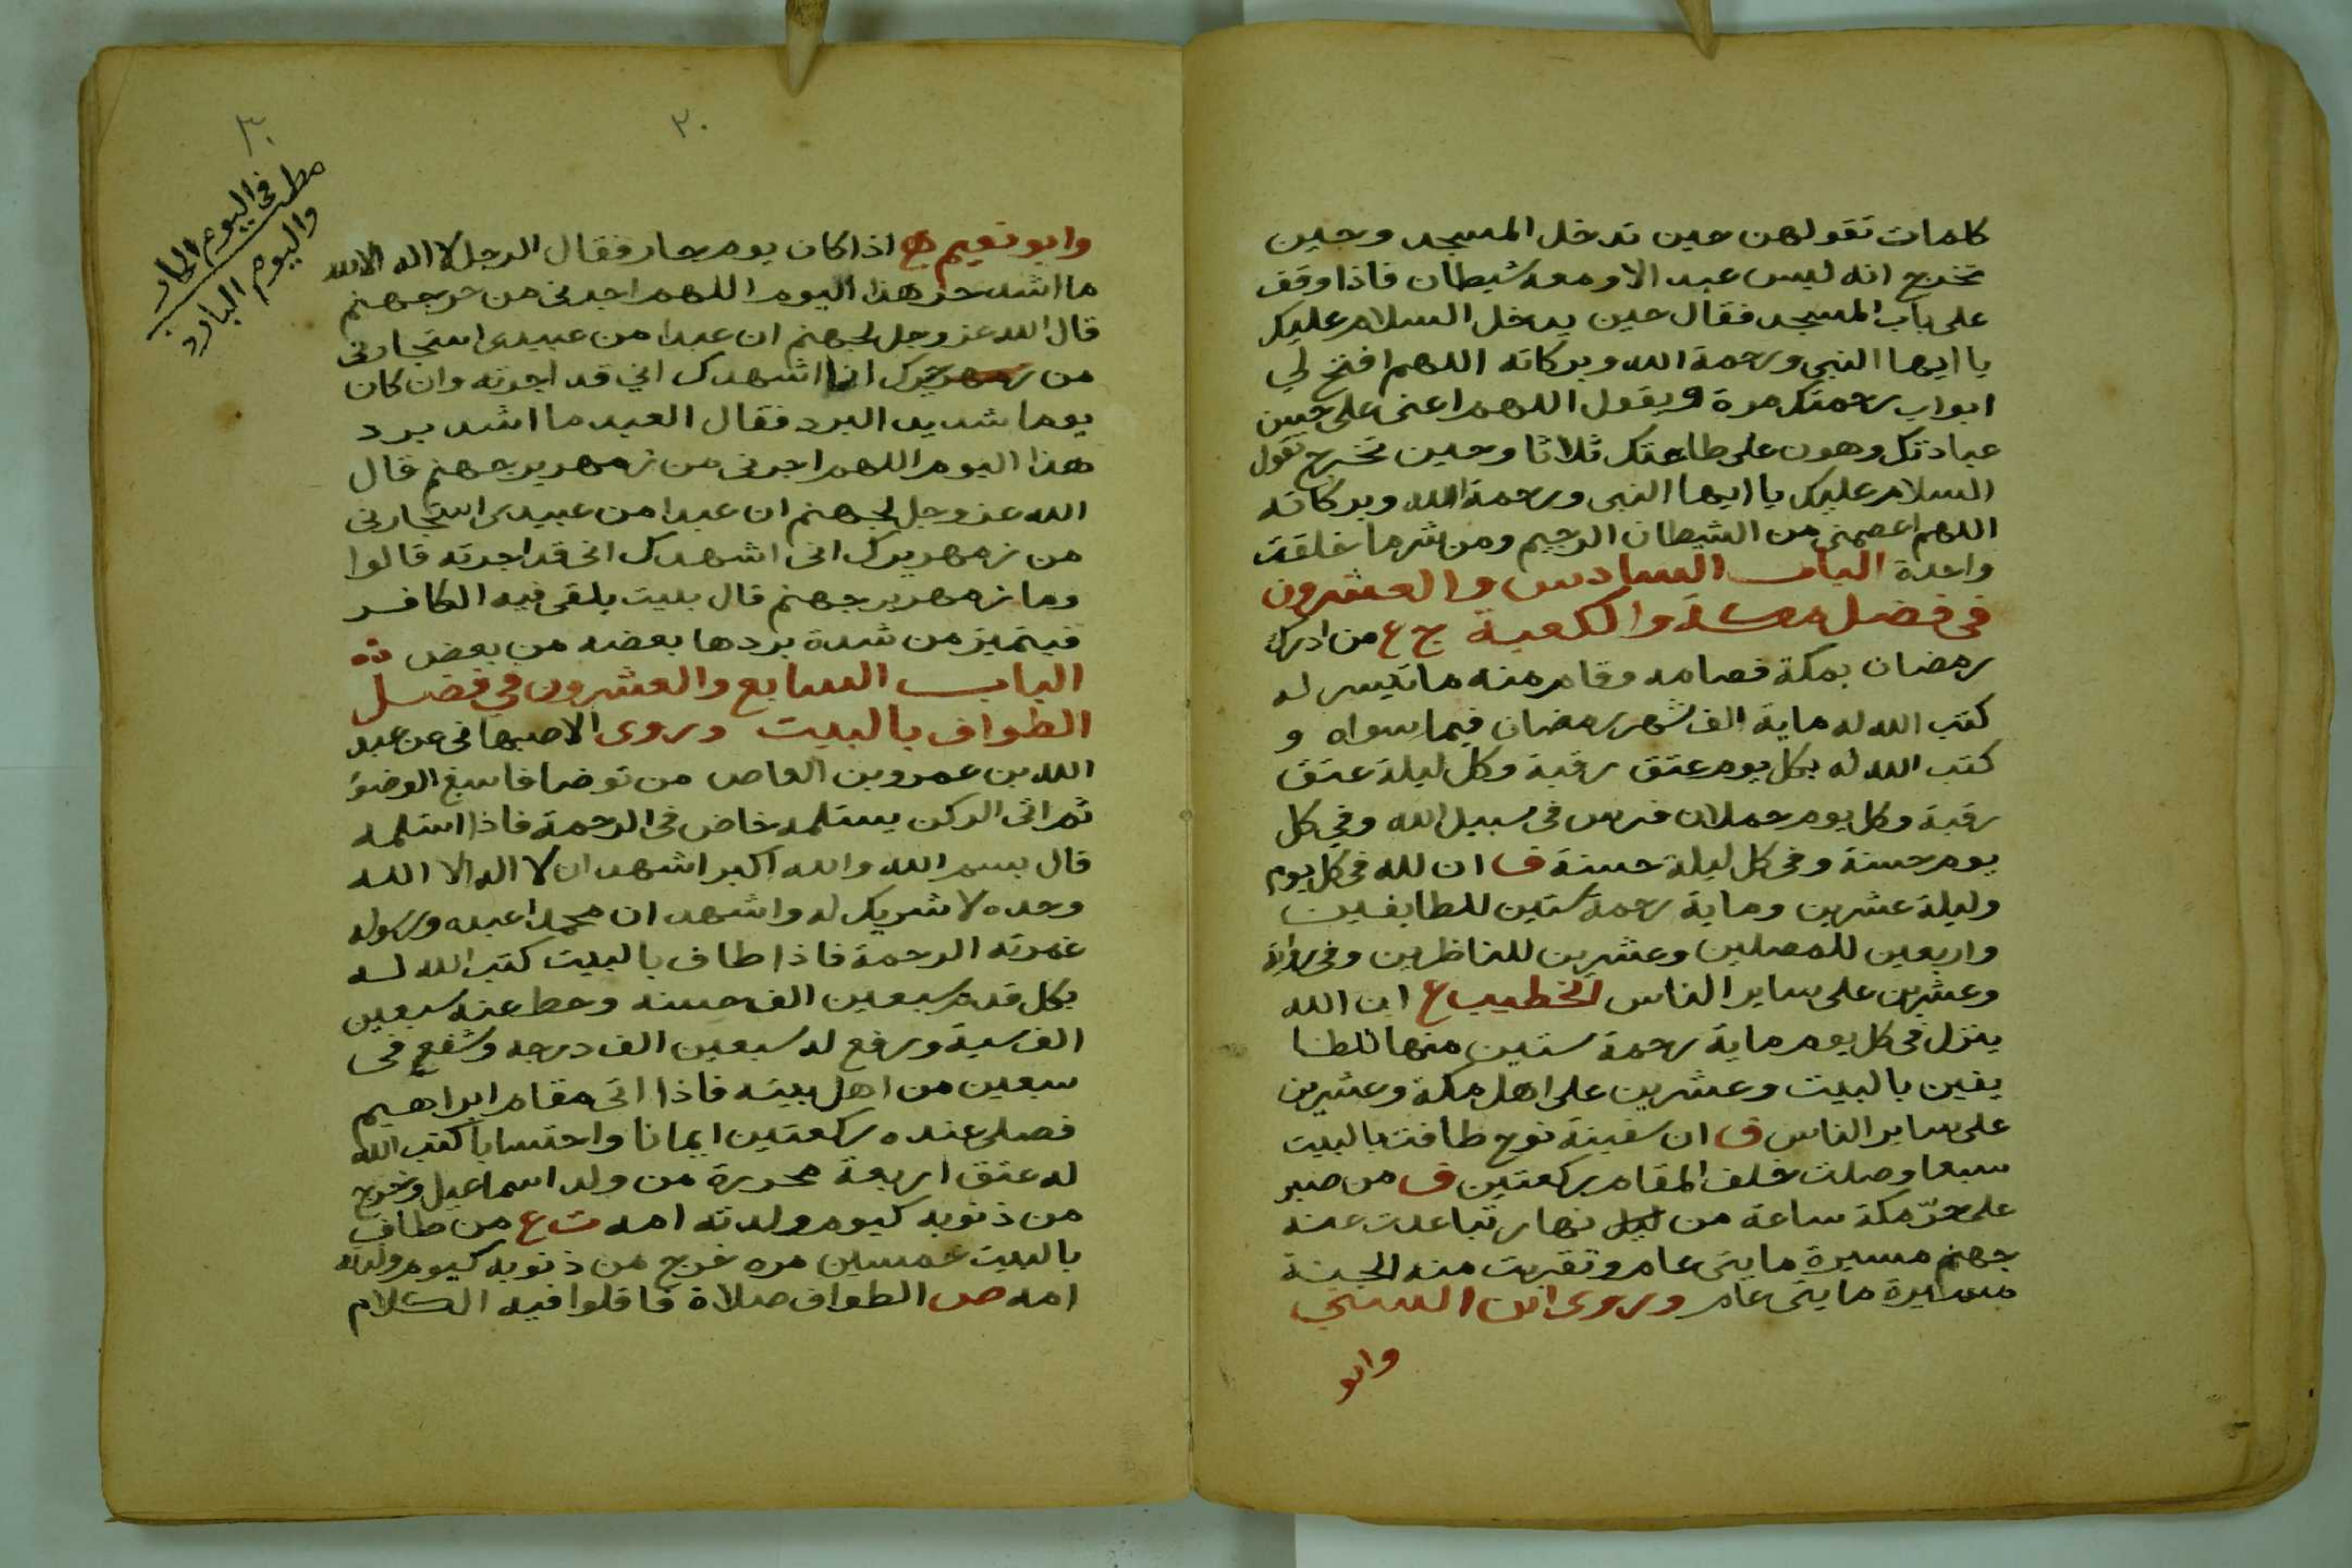 كلمات تقولهن حين تدخل المسجد وحين
تخرج انه ليس عبد الا ومعه شيطان فاذا وقف
على باب المسجد فقال حين يدخل السلام عليك
يا ايها النبي ورحمة الله وبركاته اللهم افتح لي
ابواب رحمتك مرة ويقول اللهم اعنى على حسن
عبادتك وهون على طاعتك ثلاثا وحين تخرج تقول
السلام عليك يا ايها النبى ورحمة الله وبركاته
اللهم اعصمنى من الشيطان الرجيم ومن شر ما خلقت
واحدة الباب السادس والعشرون
فى فضل مكة والكعبة ج ع من ادرك
رمضان بمكة فصامه وقام منه ما تيسر له
كتب الله له ماية الف شهر رمضان فيما سواه و
كتب الله له بكل يوم عتق رقبة وكل ليلة عتق
رقبة وكل يوم حملان فرس فى سبيل الله وفي كل
يوم حسنة وفى كل ليلة حسنة ق ان لله فى كل يوم
وليلة عشرين وماية رحمة ستين للطايفين
واربعين للمصلين وعشرين للناظرين وفى رواية
وعشرين على ساير الناس الخطيب ع ان الله
ينزل فى كل يوم ماية رحمة ستين منها للطا
يفين بالبيت وعشرين على اهل مكة وعشرين
على ساير الناس ق ان سفينة نوح طافت بالبيت
سبعا وصلت خلف المقام ركعتين ق من صبر
على حرّ مكة ساعة من ليل نهار تباعدت عنه
جهنم مسيرة مايتى عام وتقربت منه الجنة
مسيرة مايتى عام وروى ابن السني
وابو
٣٠
٢٠
مطلب فى اليوم الحار
واليوم البارد
وابو نعيم اذا كان يوم حار فقال الرجل لا اله الا الله
ما اشد حر هذا اليوم اللهم اجرنى من حر جهنم
قال الله عز وجل لجهنم ان عبدا من عبيدى استجارنى
من حرك انا اشهدك اني قد اجرته وان كان
يوما شديد البرد فقال العبد ما اشد برد
هذا اليوم اللهم اجرنى من زمهرير جهنم قال
الله عز وجل لجهنم ان عبدا من عبيدى استجارنى
من زمهريرك انى اشهدك انى قد اجرته قالوا
وما زمهرير جهنم قال بيت يلقى فيه الكافر
فيتميز من شدة بردها بعضه من بعض
الباب السابع والعشرون في فضل
الطواف بالبيت وروى الاصبهانى عن عبد
الله بن عمرو بن العاص من توضا فاسبغ الوضوء
ثم اتى الركن يستلمه خاض فى الرحمة فاذا استلمه
قال بسم الله والله اكبر اشهد ان لا اله الا الله
وحده لا شريك له واشهد ان محمدا عبده ورسوله
غمرته الرحمة فاذا طاف بالبيت كتب الله له
بكل قدم سبعين الف حسنه وحط عنه سبعين
الف سية ورفع له سبعين الف درجه وشفع فى
سبعين من اهل بيته فاذا اتى مقام ابراهيم
فصلى عنده ركعتين ايمانا واحتسابا كتب الله
له عتق اربعة محررة من ولد اسماعيل وخرج
من ذنوبه كيوم ولدته امه ت ع من طاف
بالبيت خمسين مره خرج من ذنوبه كيوم ولدته
امه ص الطواف صلاة فاقلوا فيه الكلام